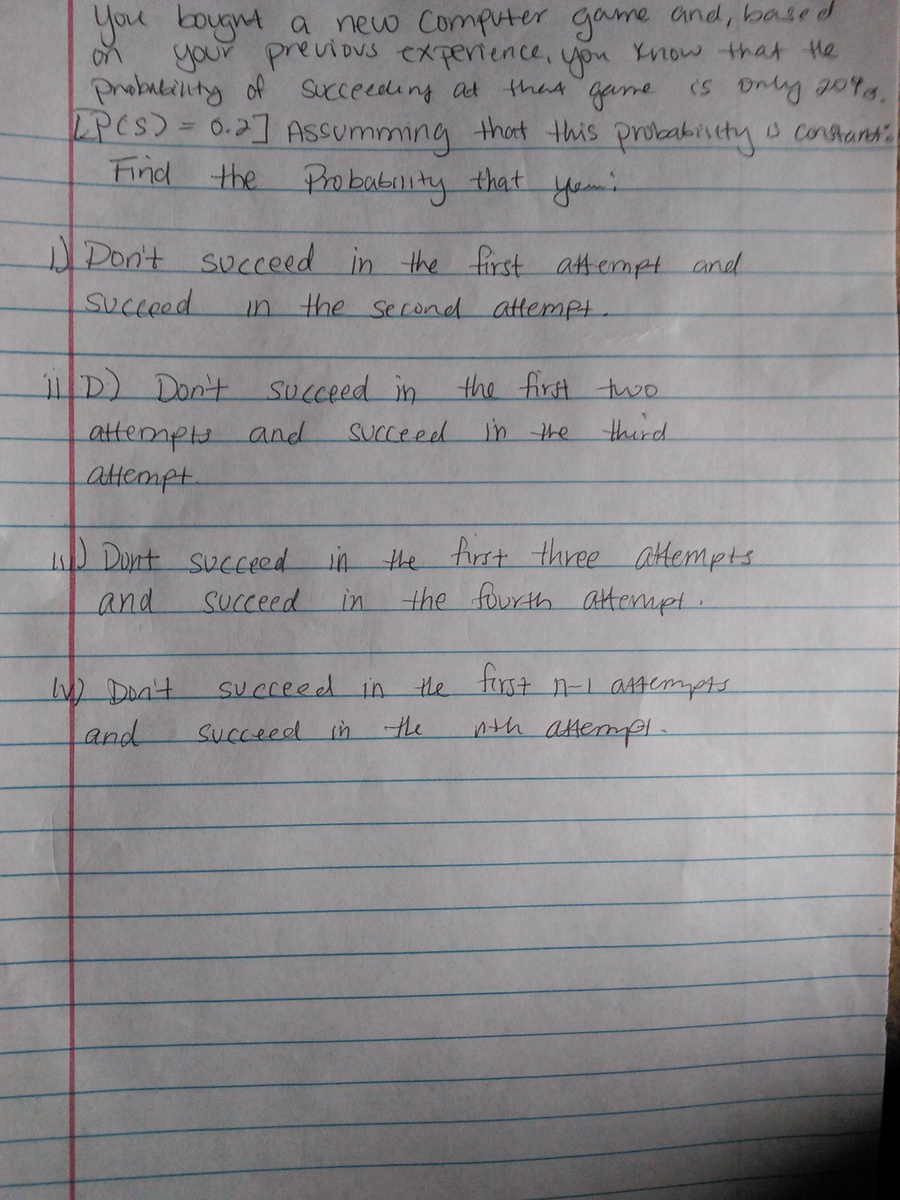 You bought a new computer game and, based
on your previous experience, you know that the
probability of succeeding at that game is only 20%.
[P(S) = 0.2] Assumming that this probability is constant:
Find the Probability that you:
i) Don't succeed in the first attempt and
succeed in the second attempt.
ii) D) Don't succeed in the first two
attempts and succeed in the third
attempt.
iii) Dont succeed in the first three attempts
and succeed in the fourth attempt.
iv) Don't succeed in the first n-1 attempts
and succeed in the nth attempt.